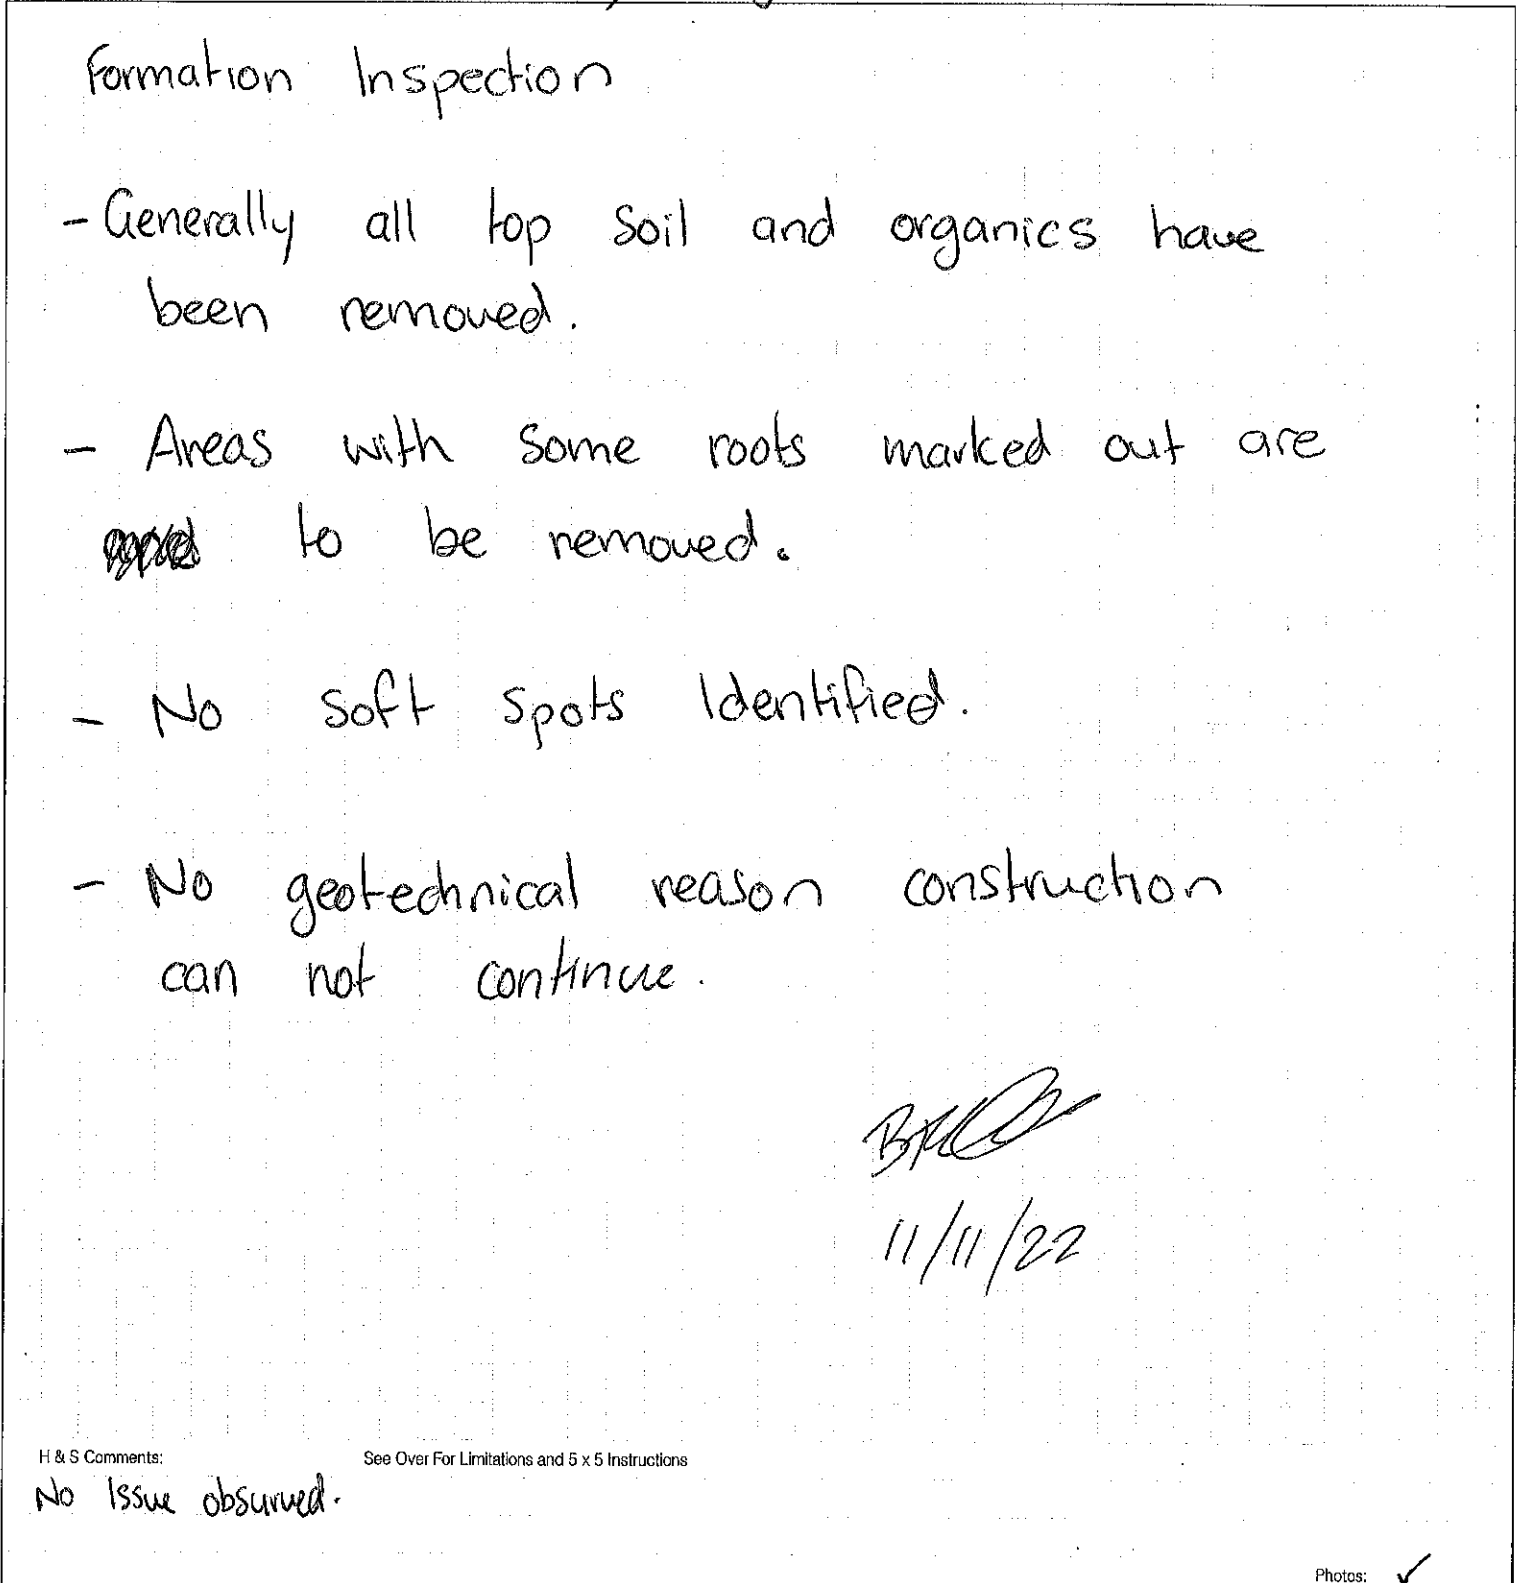 Formation Inspection
- Generally all top soil and organics have
been removed.
- Areas with some roots marked out are
to be removed.
- No soft spots Identified.
- No geotechnical reason construction
can not continue.
11/11/22
H & S Comments: See Over For Limitations and 5 x 5 Instructions
No Issue obsurved.
Photos: ✓